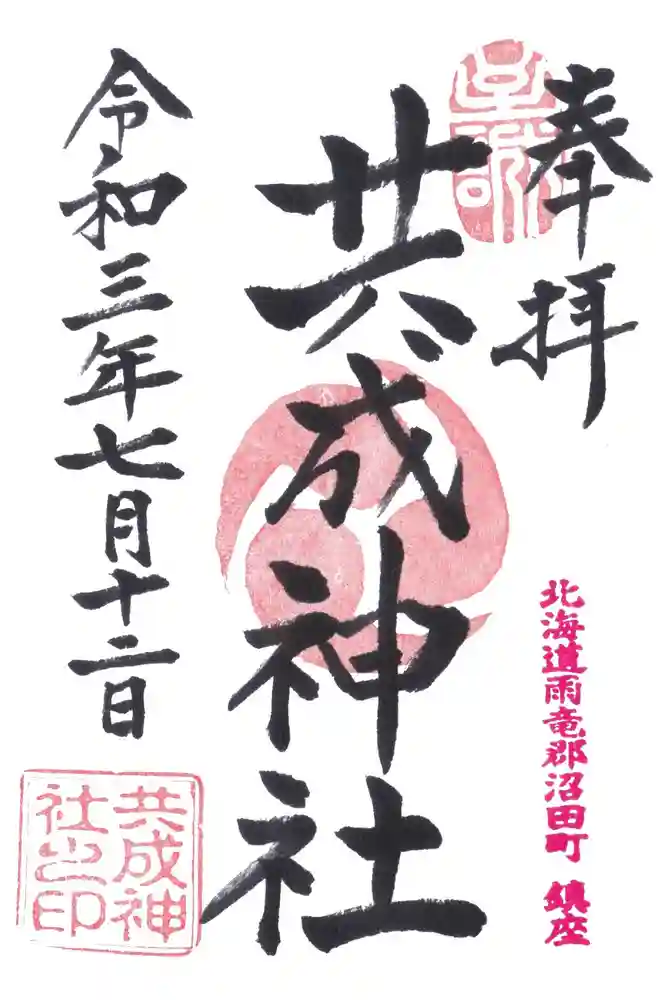 奉拝
至誠
北海道雨竜郡沼田町 鎮座
共成神社
令和三年七月十二日
共成神
社之印